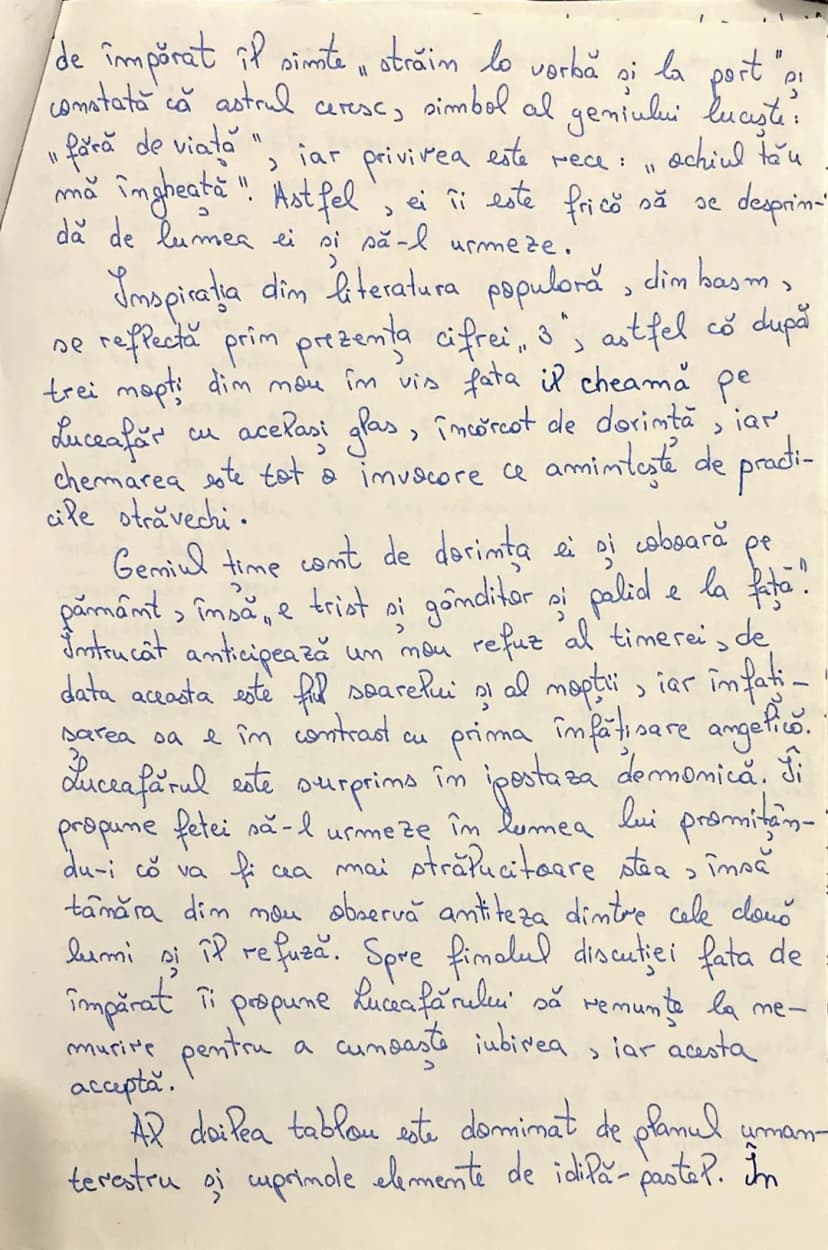 de împărat îl simte „străin la vorbă și la port" și
constată că astrul ceresc, simbol al geniului lucește:
„fără de viață", iar privirea este rece: „ochiul tău
mă îngheață". Astfel, ei îi este frică să se desprin-
dă de lumea ei și să-l urmeze.
Inspirația din literatura populară, din basm,
se reflectă prim prezența cifrei „3", astfel că după
trei nopți din nou în vis fata îl cheamă pe
Luceafăr cu același glas, încărcat de dorință, iar
chemarea este tot o invocare ce amintește de practi-
cile străvechi.
Geniul ține cont de dorința ei și coboară pe
pământ, însă „e trist și gânditor și palid e la față".
Întrucât anticipează un nou refuz al tinerei, de
data aceasta este fiul soarelui și al nopții, iar înfăți-
șarea sa e în contrast cu prima înfățișare angelică.
Luceafărul este surprins în ipostaza demonică. Îi
propune fetei să-l urmeze în lumea lui promițân-
du-i că va fi cea mai strălucitoare stea, însă
tânăra din nou observă antiteza dintre cele două
lumi și îl refuză. Spre finalul discuției fata de
împărat îi propune Luceafărului să renunțe la ne-
murire pentru a cunoaște iubirea, iar acesta
acceptă.
Al doilea tablou este dominat de planul uman-
terestru și cuprinde elemente de idilă-pastel. În